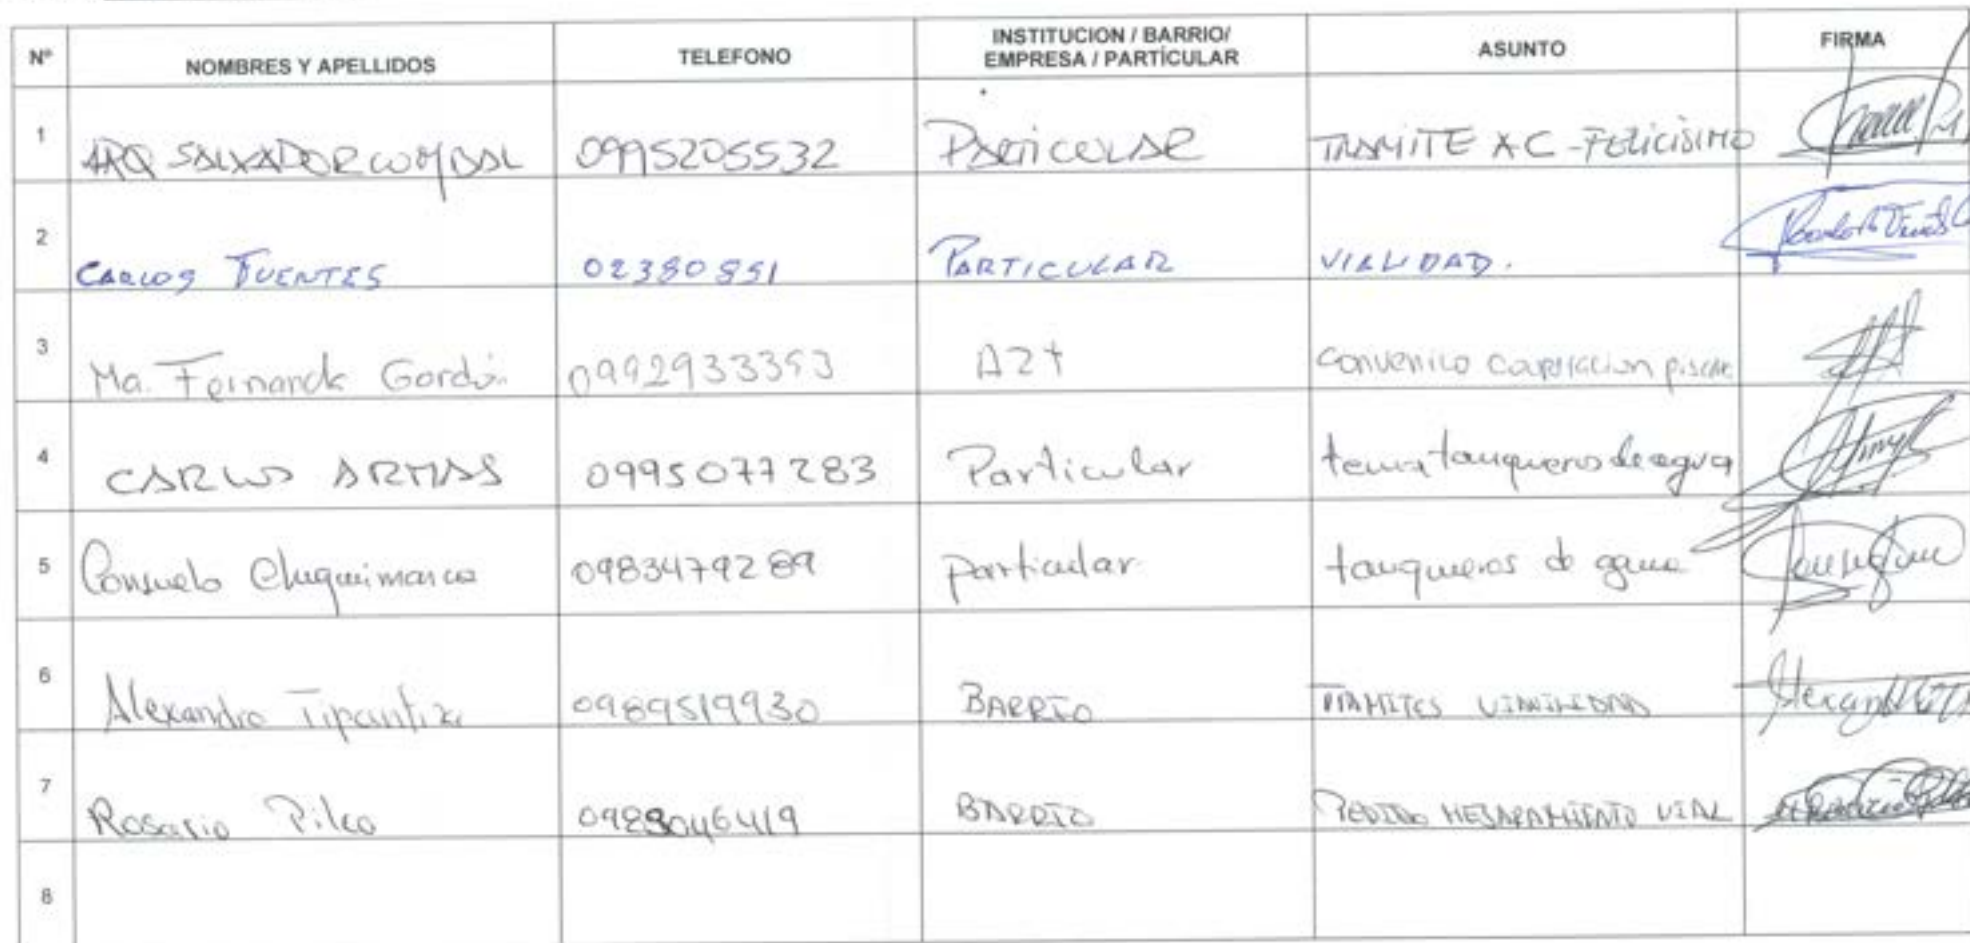 Nº NOMBRES Y APELLIDOS TELEFONO INSTITUCION / BARRIO/ EMPRESA / PARTÍCULAR ASUNTO FIRMA
1 ARQ SALVADOR 0995205532 PARTICULAR TRAMITE A.C - FELICISIMO
2 CARLOS FUENTES 02380851 PARTICULAR VIALIDAD.
3 Ma. Fernanda Gordón AZT convenio
4 CARLOS ARMAS 0995077283 Particular tema tanqueros de agua
5 Consuelo Chuquimarca 0983479289 particular tanqueros de agua
6 Alexandra 0989519930 BARRIO TRAMITES VIALIDAD
7 Rosario Pilco BARRIO PEDIDO MEJORAMIENTO VIAL
8